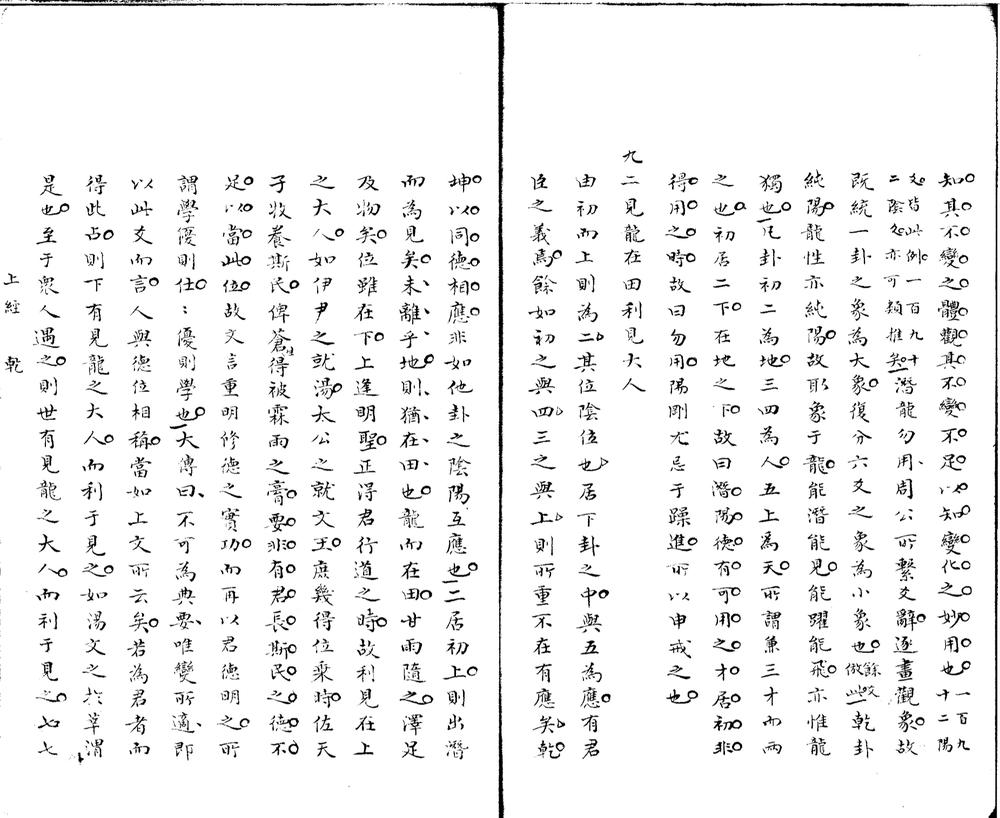 知其不變之體觀其不變不足以知變化之妙用也一百九十二陽
爻皆此例一百九十二陰爻亦可類推矣潛龍勿用周公所繫爻辭逐畫觀象故
既統一卦之象為大象復分六爻之象為小象也餘爻倣此乾卦
純陽龍性亦純陽故取象于龍能潛能見能躍能飛亦惟龍
獨也凡卦初二為地三四為人五上為天所謂兼三才而兩
之也初居二下在地之下故曰潛陽德有可用之才居初非
得用之時故曰勿用陽剛尤忌于躁進所以申戒之也
九二見龍在田利見大人
由初而上則為二其位陰位也居下卦之中與五為應有君
臣之義焉餘如初之與四三之與上則所重不在有應矣乾
坤以同德相應非如他卦之陰陽互應也二居初上則出潛
而為見矣未離乎地則猶在田也龍而在田甘雨隨之澤足
及物矣位雖在下上逢明聖正得君行道之時故利見在上
之大人如伊尹之就湯太公之就文王庶幾得位乘時佐天
子牧養斯民俾蒼生得被霖雨之膏要非有君長斯民之德不
足以當此位故文言重明修德之實功而再以君德明之所
謂學優則仕：優則學也大傳曰不可為典要唯變所適即
以此爻而言人與德位相稱當如上文所云矣若為君者而
得此占則下有見龍之大人而利于見之如湯文之於莘渭
是也至于衆人遇之則世有見龍之大人而利于見之七七
上經 乾